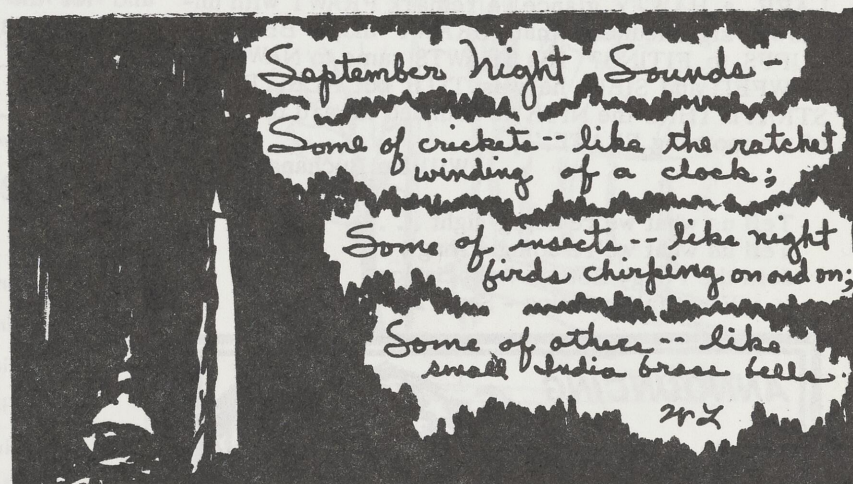 September Night Sounds -
Some of crickets -- like the ratchet
winding of a clock;
Some of insects -- like night
birds chirping on and on;
Some of others -- like
small India brass bells.
WL